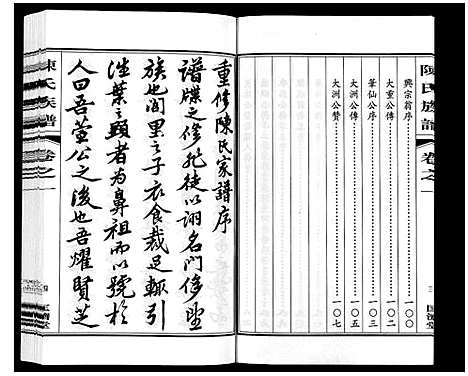 陳氏族譜
卷之一
興宗翁序……一〇〇
大重公傳……一〇二
筆仙公序……一〇三
大洲公傳……一〇五
大洲公贊……一〇七
重修陳氏家譜序
譜牒之修非徒以詡名門侈望
族也閭里之子衣食裁足輒引
湮葉之顯者為鼻祖而以號於
人曰吾萱公之後也吾耀賢芝
陳氏族譜
卷之一
四